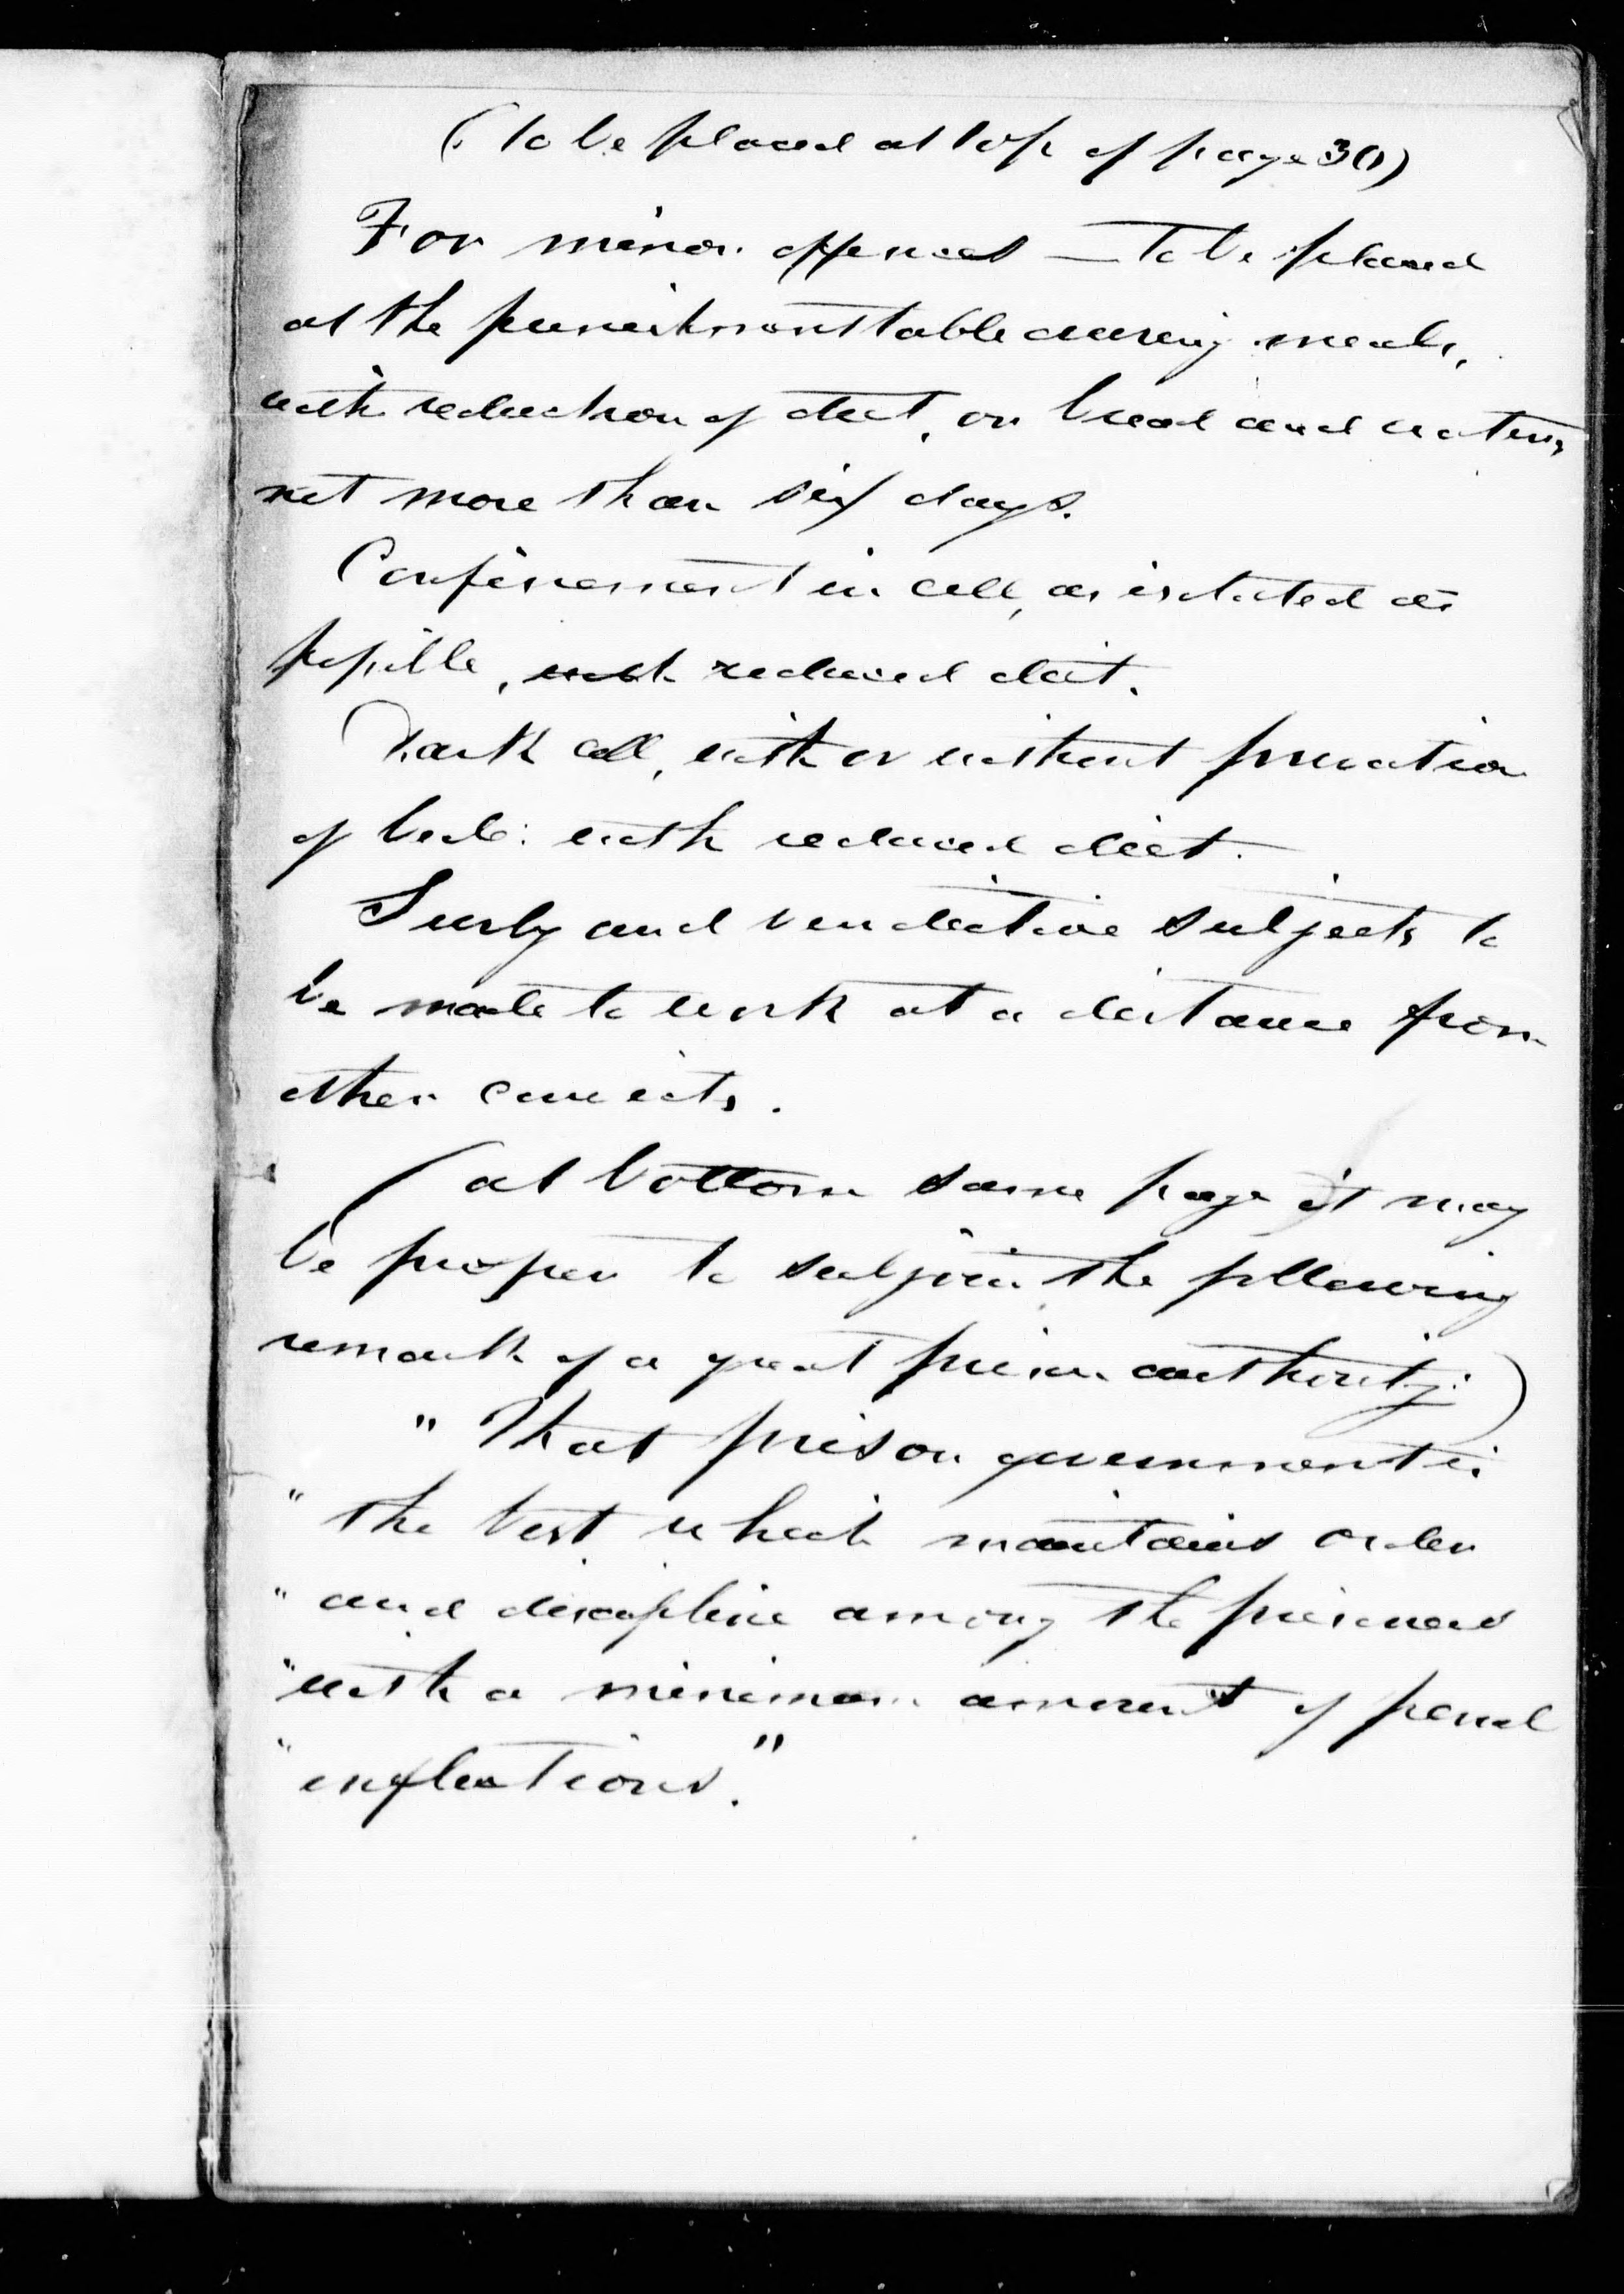 (to be placed at top of page 30)
For minor offences — To be placed
at the punishment table during meals,
with reduction of diet, on bread and water,
not more than six days.
Confinement in cell, as isolated as
possible, with reduced diet.
Dark cell, with or without privation
of bed: with reduced diet.
Surly and vindictive subjects to
be made to work at a distance from
other convicts.
(at bottom same page it may
be proper to subjoin the following
remark of a great prison authority:)
" That prison government is
" the best which maintains order
" and discipline among the prisoners
" with a minimum amount of penal
" inflictions."